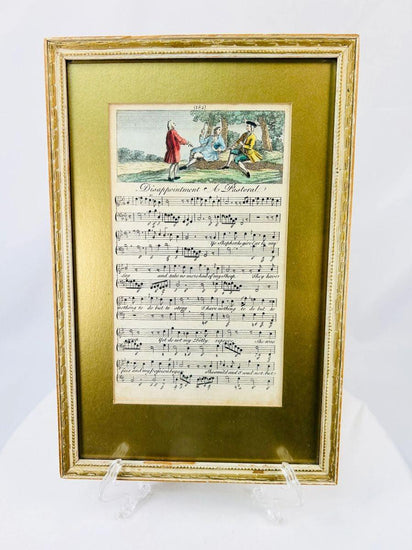 (184)
Disappointment A Pastoral
Ye Shepherds give ear to my
lay and take no more heed of my Sheep They have
nothing to do but to stray I have nothing to do but to
Yet do not my Folly reprove She was
fair and my Passion begun She smil'd and I could not but